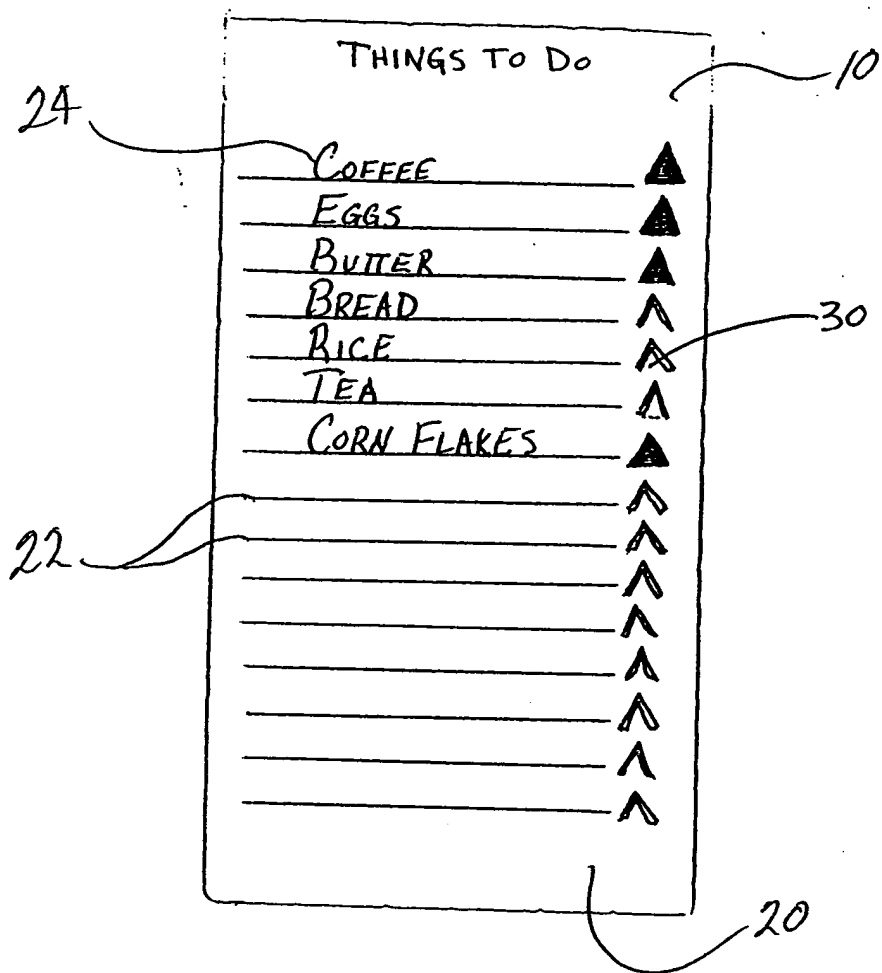 THINGS TO DO
10
24
COFFEE
EGGS
BUTTER
BREAD
RICE
30
TEA
CORN FLAKES
22
20